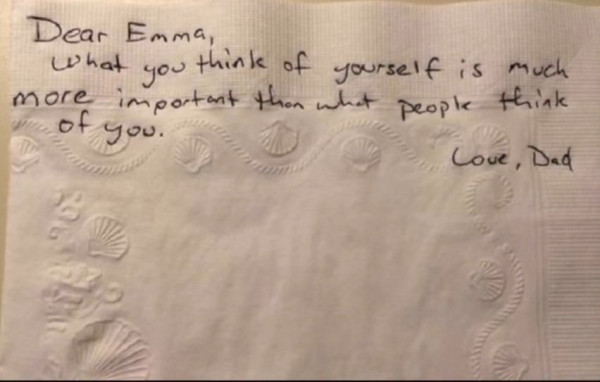 Dear Emma,
What you think of yourself is much
more important than what people think
of you.
Love, Dad